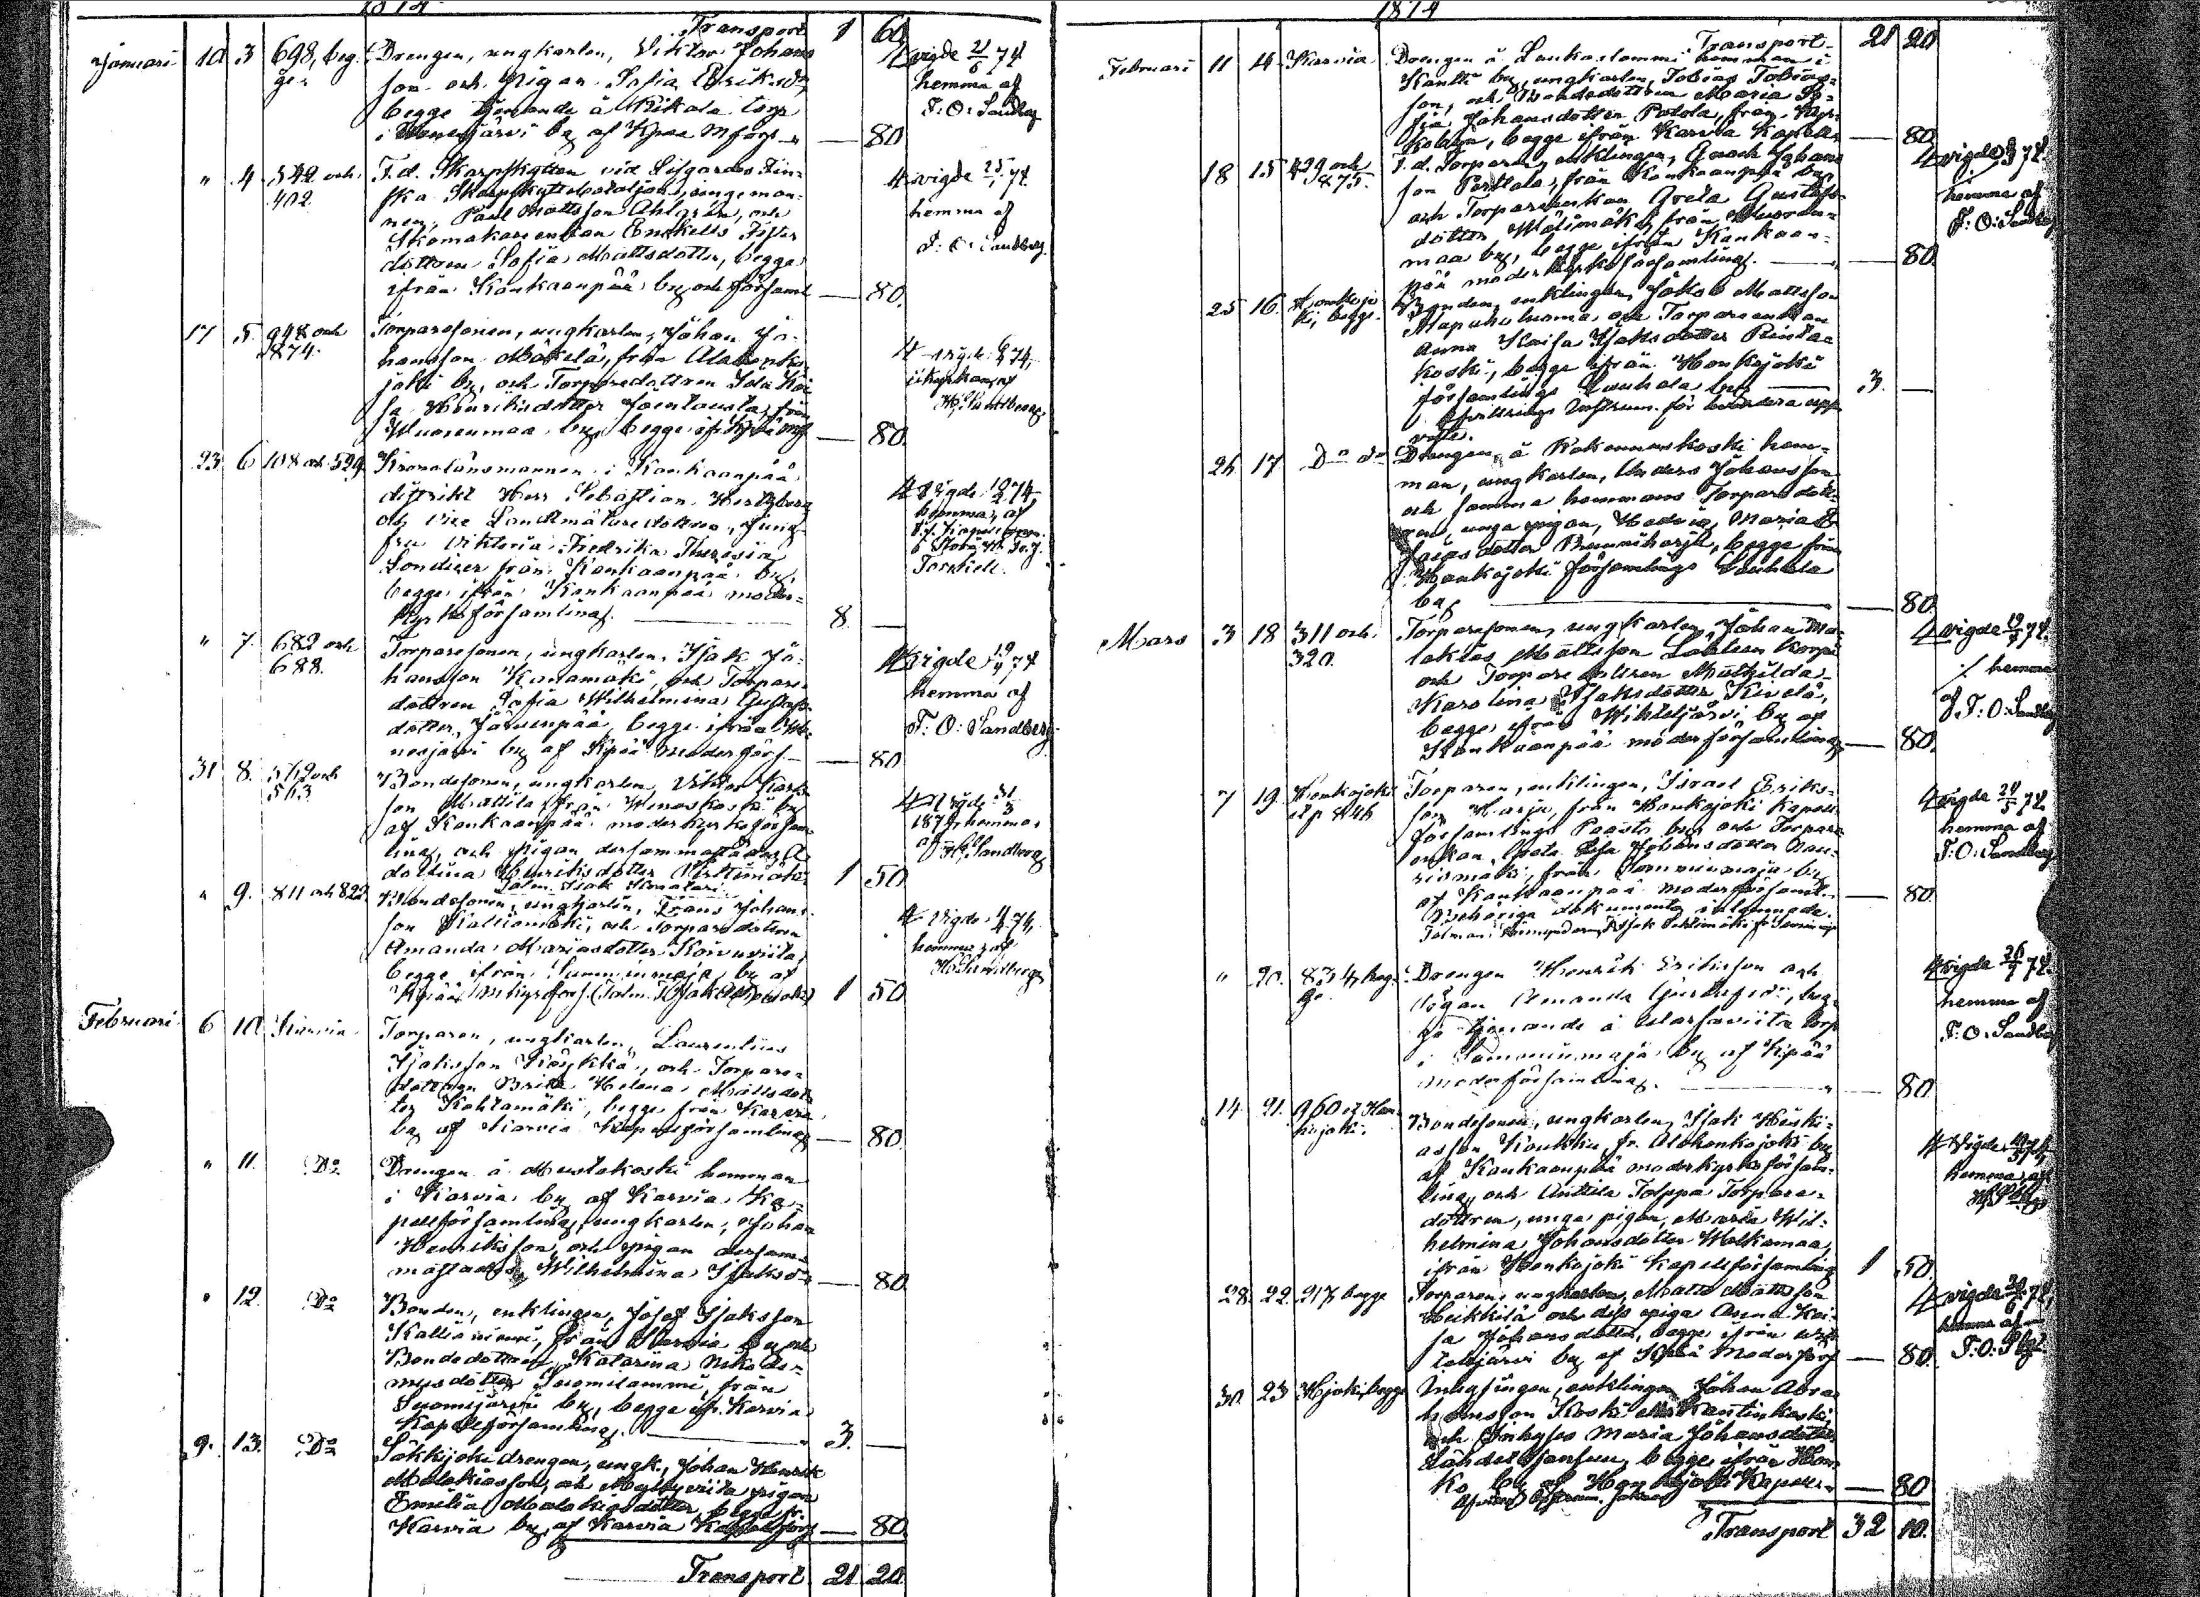 1874
Transport 1 60
Januari 10 3 698, beg- Drengen, ungkarlen, Viktor Johans
ge. son och Pigan Sofia Eriksdr,
begge tjenande å Rikala torp
i Wenesjärvi by af Kpää Mförs. — 80
vigde 21/6 74
hemma af
F. O. Sandberg
" 4 542 och F. d. Skarpskytten vid Lifgardes Fin-
402. ska Skarpskyttebataljon, ungeman-
nen, Paul Mattsson Ahlgren, och
Skomakareenkan Enckells Fister
dottren Sofia Mattsdotter, begge
ifrån Kankaanpää by och församl — 80.
vigde 25/1 74.
hemma af
F. O. Sandberg.
17 5. 948 och Torparesonen, ungkarlen, Johan Jo-
874. hansson Mäkelä, från Alahonko-
joki by, och Torparedottren Ida Kai-
sa Henriksdotter Joentausta, från
Wuorenmaa by, begge ifr. Kpää Mf — 80.
74,
i kyrkan, af
H. Sandberg.
23 6 108 och 529 Kronolänsmannen i Kankaanpää
distrikt Herr Sebastian Hertzberg
och Vice Landtmäturedottren, Jung-
fru Viktoria Fredrika Theresia
Londicer från Kankaanpää by,
begge ifrån Kankaanpää moder-
kyrkoförsamling. — 8 —
Vigde 10/2 74,
hemma, af
Torckell.
" 7. 682 och Torparesonen, ungkarlen, Isak Jo-
688. hansson Kanamäki, och Torpare-
dottren Sofia Wilhelmina Gustafs-
dotter Järvenpää, begge ifrån We-
nesjärvi by af Kpää Moderförs. — 80
vigde 19/4 74
hemma af
F. O. Sandberg
31 8. 562 och Bondesonen, ungkarlen, Viktor Karls-
563 son Mattila från Weneskoski by
af Kankaanpää moderkyrkoförsam-
ling, och Pigan dersammastädes A
dolfina Henriksdotter Virkimäki 1 50
Vigde 31/3
1874, hemma,
af H. Sandberg
Talm. Isak
" 9. 811 och 822 Bondesonen, ungkarlen, Frans Johans-
son Kalliomäki, och Torparedottren
Amanda Mariasdotter Koivuviita,
begge ifrån Samminmaja by af
Kpää Mkyrkofors. (Talm. Isak 1 50
Vigde 74,
hemma, af
H. Sandberg
Februari 6 10 Karvia Torparen, ungkarlen, Laurentius
Isaksson Köykkä, och Torpare-
dottren Brita Helena Mattsdot-
ter Kohtamäki, begge från Karvia
by af Karvia Kapellförsamling — 80.
" 11. Do Drengen å Mustakoski hemman
i Karvia by af Karvia Ka-
pellförsamling, ungkarlen, Johan
Henriksson, och pigan dersam-
mastädes, Wilhelmina Isaksdr — 80.
" 12. Do Bonden, enklingen, Josef Isaksson
Kallioniemi, från Karvia by och
Bondedottren Katarina Nikode-
musdotter Suomilammi, från
Suomijärvi by, begge ifr. Karvia
Kapellförsamling. — 3. —
9. 13. Do Säkkijoki drengen, ungk., Johan Henrik
Malakiasson, och Myllyviita pigan
Emilia Malakiasdotter, begge fr.
Karvia by af Karvia Kapellförs — 80
Transport 21 20
1874
Transport 21 20
Februari 11 14 Karvia Drengen å Laukaslammi hemman i
Kantti by, ungkarlen, Tobias Tobias-
son, och Bondedottren Maria So-
fia Johansdotter Patola, från
begge ifrån Karvia Kapells — 80
18 15 429 och F. d. Torparen, enklingen, Enoch Johans
475. son Perttola, från Kankaanpää by,
och Torpareenkan Greta Gustafs-
dotter Wälimäki, från Wuoren-
maa by, begge ifrån Kankaan-
pää moderkyrkoförsamling. — 80
vigde 74.
hemma af
F. O. Sandberg
25 16. Honkajo- Bonden, enklingen, Jakob Mattsson
ki, begge. Alapuhuluoma och Torpareenkan
Anna Kaisa Isaksdotter Rintaa
koski, begge ifrån Honkajoki
församlings Lauhala by — 3. —
Afvittrings Instrum. för bemälda upp
viste.
26 17 Do do Drengen å Kokonnuskoski hem-
man, ungkarlen, Anders Johansson
och samma hemmans Torparedot-
ren, unga pigan, Hedvig Maria E
saiasdotter Bruuniharju, begge från
Honkajoki församlings Lauhala
by. — 80
Mars 3 18 311 och Torparesonen, ungkarlen, Johan Ma-
320. lakias Mattsson Lahteen Korpi
och Torparedottren Mathilda
Karolina Isaksdotter Kivelä,
begge ifrån Wihteljärvi by af
Kankaanpää moderförsamling — 80.
vigde 19/4 74.
hemma
af F. O. Sandberg
7 19. Honkajoki Torparen, enklingen, Israel Eriks-
och 446 son Harju, från Honkajoki Kapell-
församlings Paasto by, och Torpare
enkan, Greta Lisa Johansdotter Nau-
rismäki, från Samminmaja by
af Kankaanpää moderförsaml. — 80.
Behöriga dokumenter inlemnade.
vigde 24/5 74.
hemma af
F. O. Sandberg
" 20. 834, beg- Drengen Henrik Eriksson och
ge. Pigan Amanda Gustafsdr, beg-
ge tjenande å Marjaviita torp
i Samminmaja by af Kpää
moderförsamling. — 80
vigde 26/7 74.
hemma af
F. O. Sandberg
14. 21. 960 och Hon- Bondesonen, ungkarlen, Isak Heiki-
kajoki. asson Koukku, fr. Alahonkajoki by
af Kankaanpää moderkyrkoförsam-
ling, och Anttila Tolppa Torpare-
dottren, unga pigan, Maria Wil-
helmina Johansdotter Walkamaa,
ifrån Honkajoki Kapellförsamling 1 50.
Vigde 74,
hemma, af
28. 22. 217 begge Torparen, ungkarlen, Matts Mattsson
Heikkilä och dess piga Anna Kai-
sa Johansdotter, begge ifrån Wih-
teljärvi by af Kpää Moderförs — 80.
vigde 74,
hemma af
F. O. Sbg.
30. 23 Hjoki, begge Inhysingen, enklingen Johan Abra-
hamsson Koski eller Kantinkoski
och Inhyses Maria Johansdotter
begge ifrån Hon
ko by af Honkajoki Kapells. — 80
Transport 32 10.